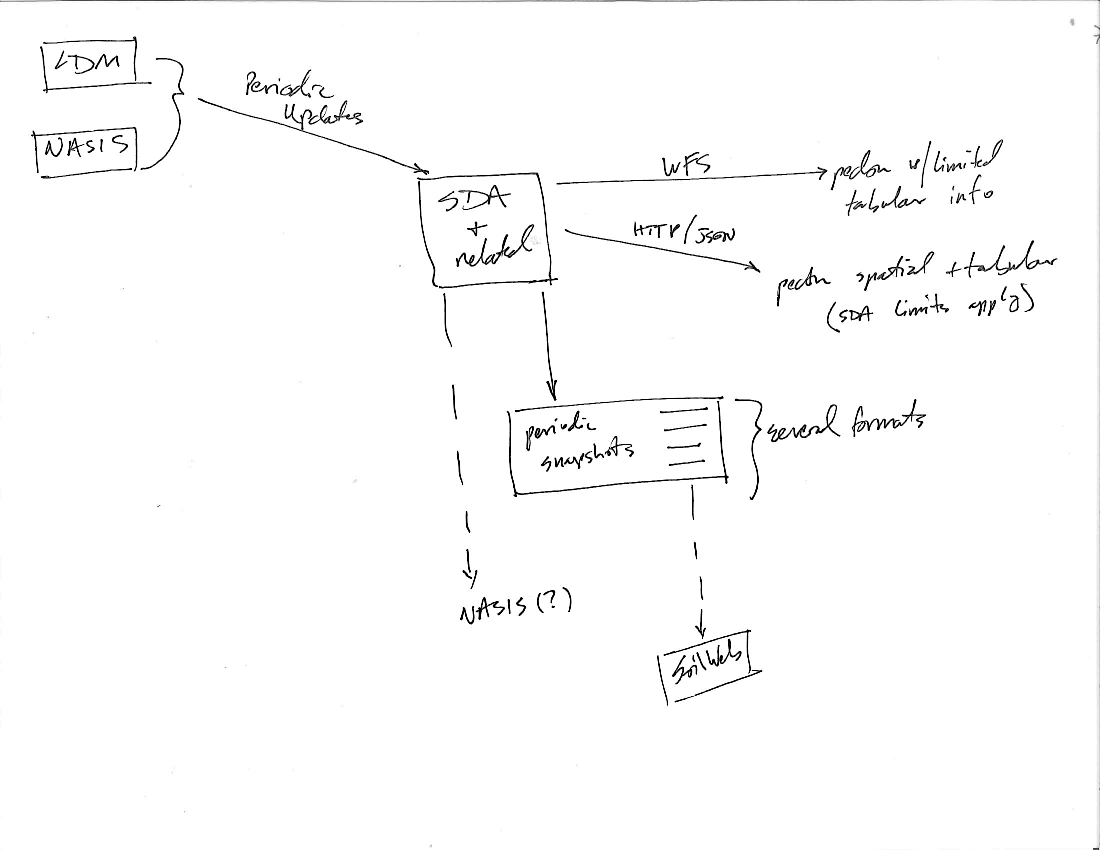 LDM
NASIS
Periodic
Updates
SDA
+
related
WFS
pedon w/limited
tabular info
HTTP/JSON
pedon spatial + tabular
(SDA limits apply)
periodic
snapshots
several formats
NASIS(?)
SoilWeb